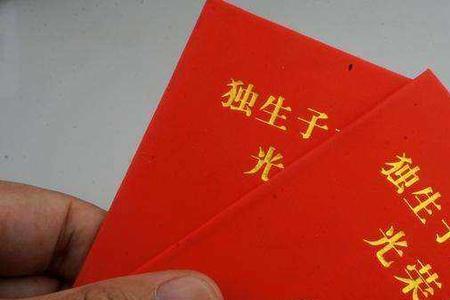 独生子
光
独生子
光荣